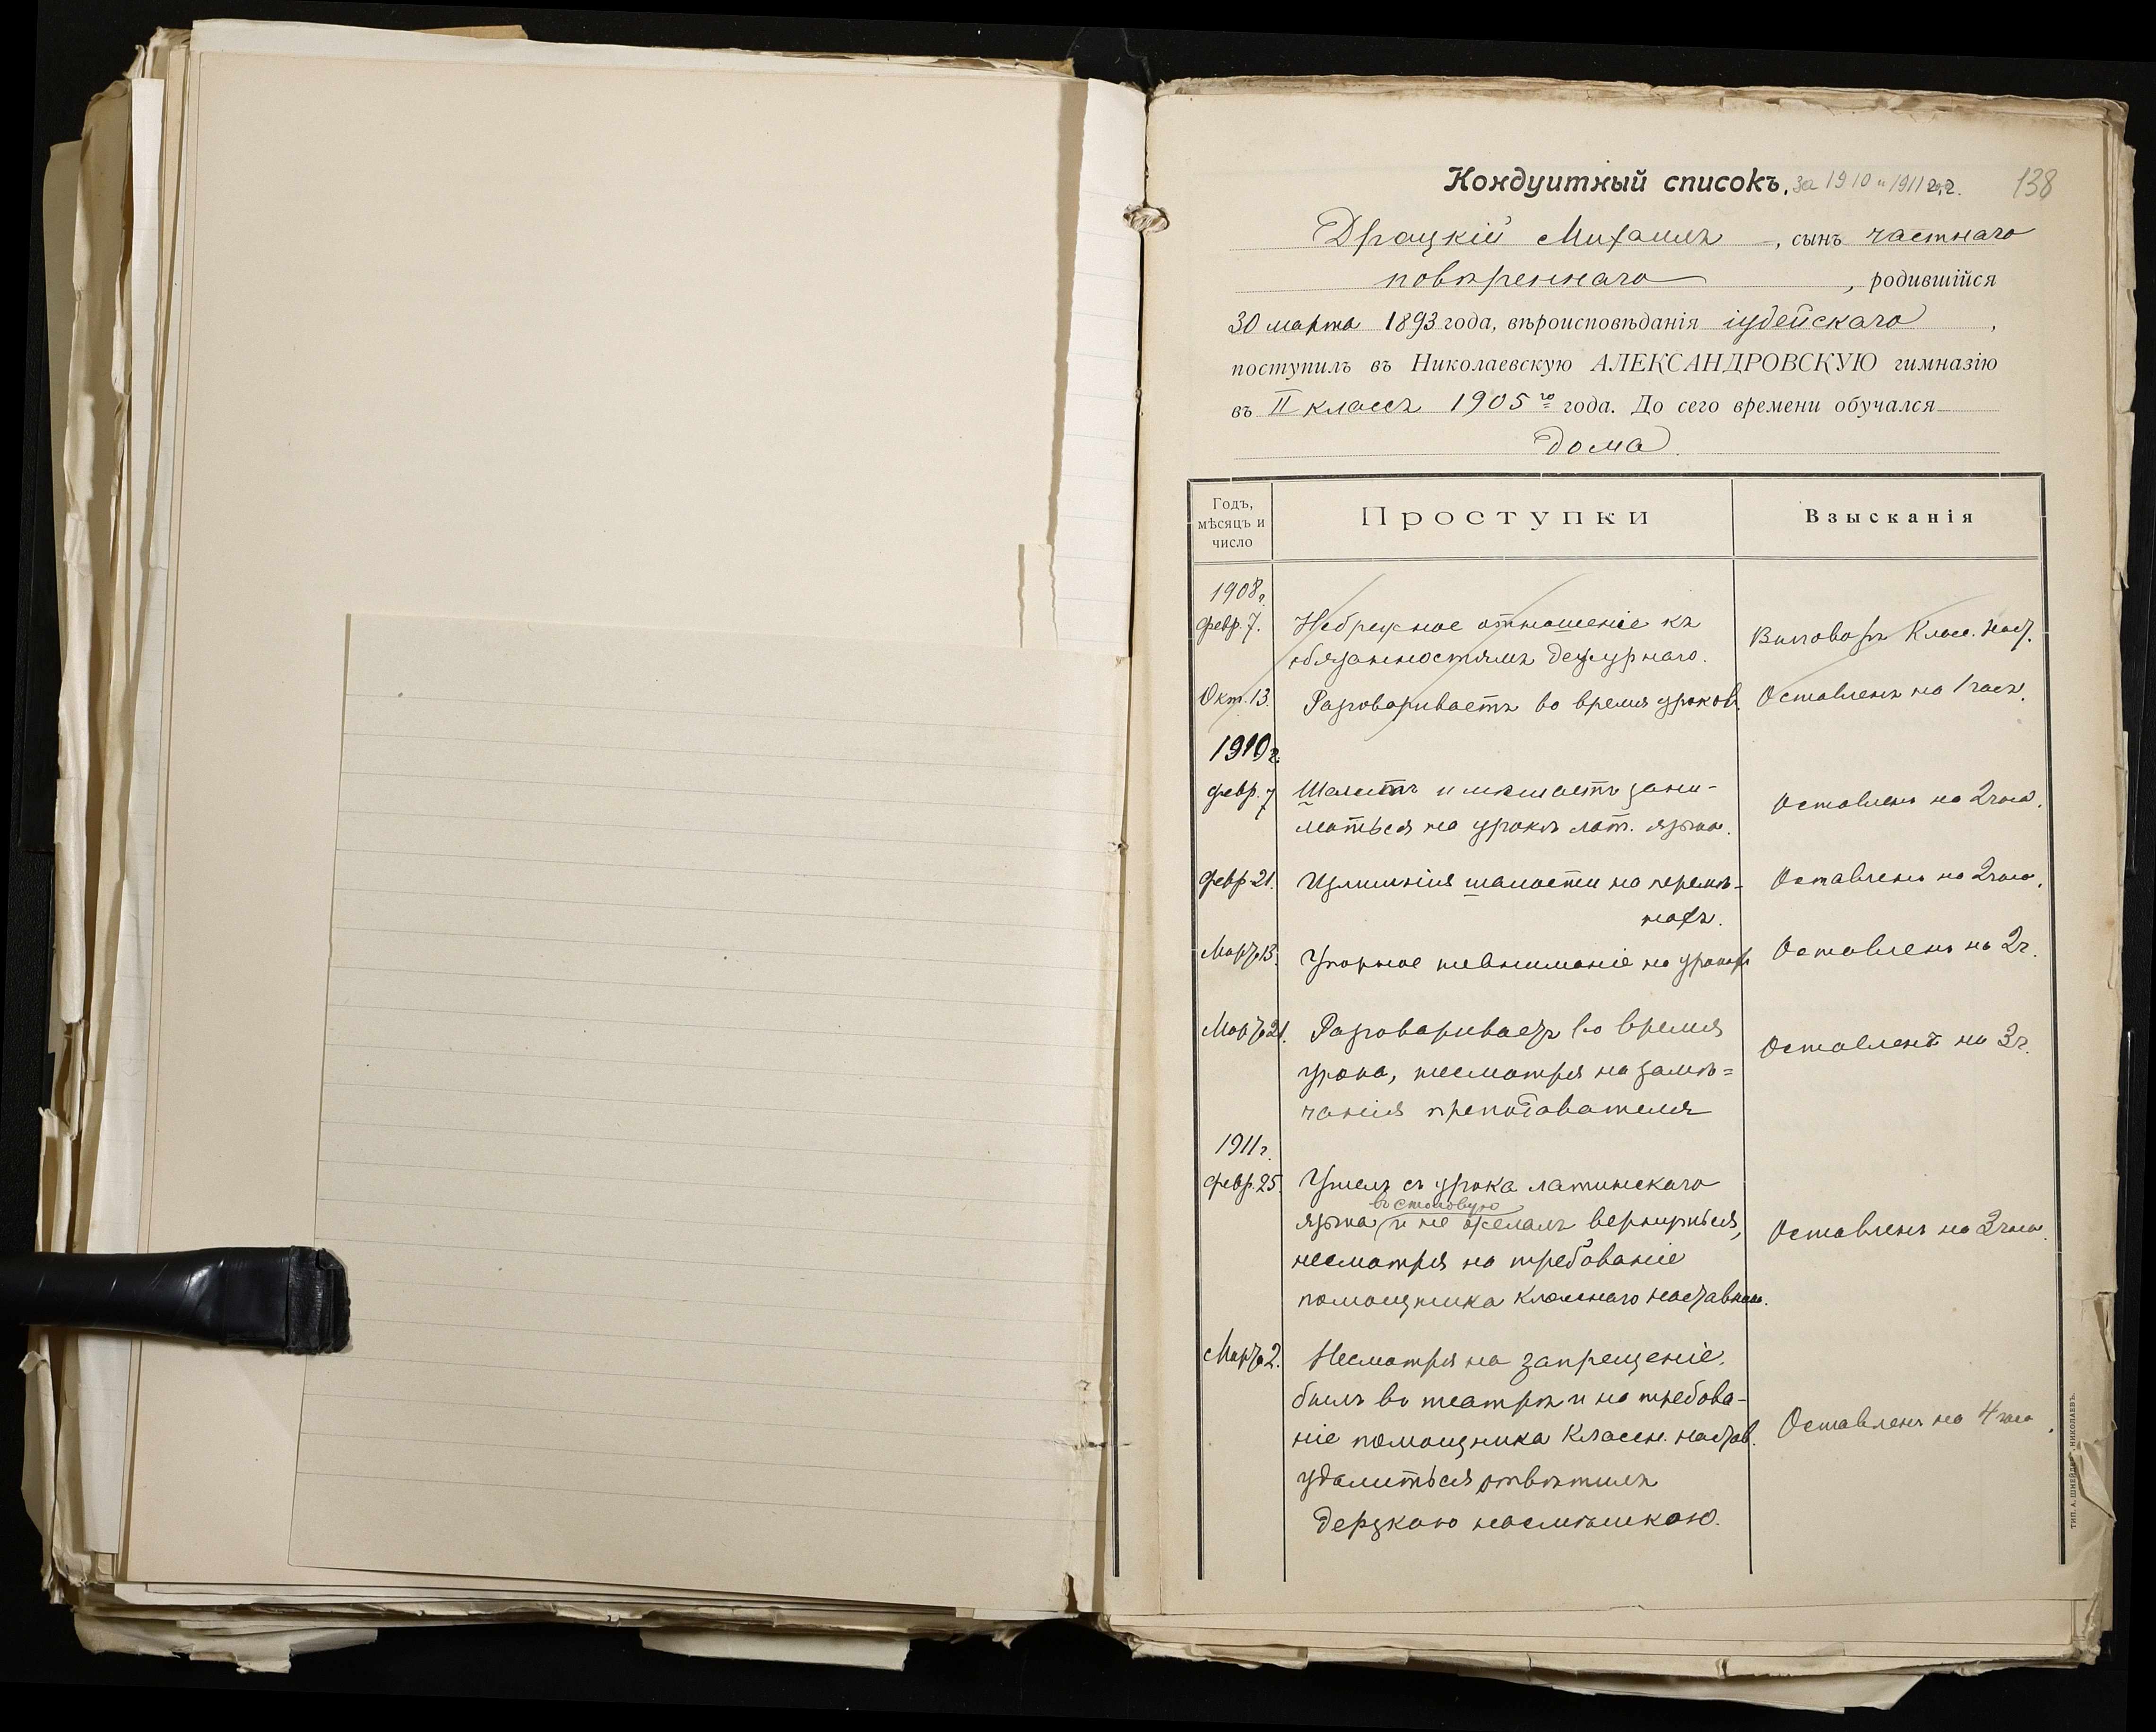 Кондуитный списокъ, за 1910 и 1911 г.г. 138
Драцкій Михаилъ, сынъ частнаго
повѣреннаго, родившійся
30 марта 1893 года, вѣроисповѣданія іудейскаго,
поступилъ въ Николаевскую АЛЕКСАНДРОВСКУЮ гимназію
въ II классъ 1905 го года. До сего времени обучался
дома.
Годъ, мѣсяцъ и число
Проступки
Взысканія
1908 г.
февр. 7. Небрежное отношеніе къ
обязанностямъ дежурнаго.
Выговоръ Класс. Наст.
Окт. 13. Разговариваетъ во время уроковъ. Оставленъ на 1 часъ.
1910 г.
февр. 7 Шалитъ и мѣшаетъ зани-
маться на урокѣ лат. языка.
Оставленъ на 2 часа.
февр 21. Излишнія шалости на перемѣ-
нахъ.
Оставленъ на 2 часа.
Марта 13. Упорное невниманіе на урокахъ Оставленъ на 2 ч.
Марта 21. Разговариваетъ во время
урока, несмотря на замѣ=
чанія преподавателя
Оставленъ на 3 ч.
1911 г.
февр. 25. Ушелъ съ урока латинскаго
въ столовую
языка и не желалъ вернуться,
несмотря на требованіе
помощника класснаго наставник.
Оставленъ на 3 часа.
Марта 2. Несмотря на запрещеніе,
былъ въ театрѣ и на требова-
ніе помощника Классн. настав.
удалиться отвѣтилъ
дерзкою насмѣшкою.
Оставленъ на 4 часа.
ТИП. А. ШНЕЙДЕР НИКОЛАЕВЪ.